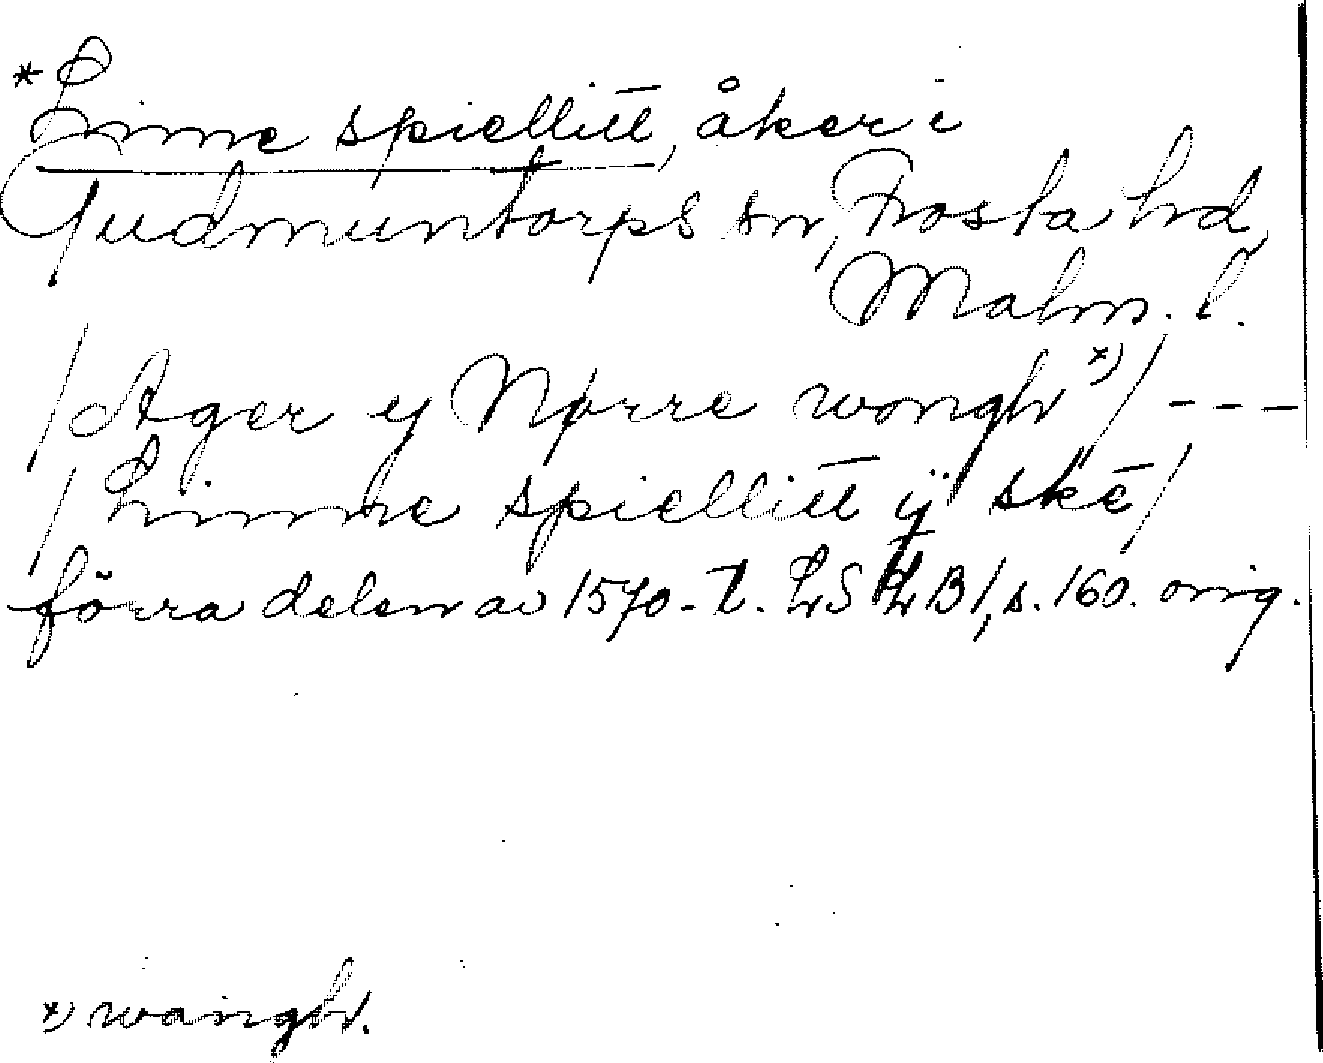 *Linne spiellitt, åker i
Gudmuntorps sn, Frosta hd,
Malm. l.
/Ager y Nørre wongh x)/ ---
/Linne spiellitt ÿ skē/
förra delen av 1570-t. LSLB1, s. 160. orig.
x) wangh.